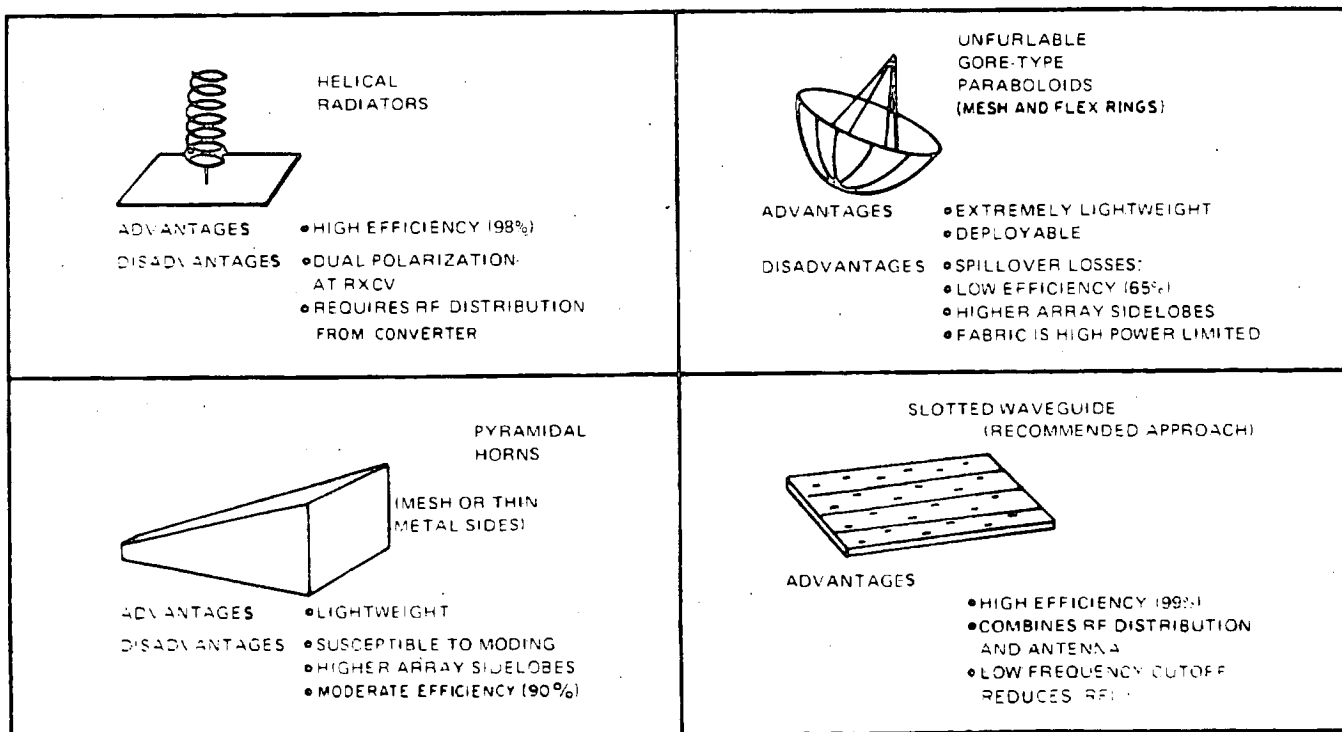 HELICAL
RADIATORS
ADVANTAGES • HIGH EFFICIENCY (98%)
DISADVANTAGES • DUAL POLARIZATION
AT RXCV
• REQUIRES RF DISTRIBUTION
FROM CONVERTER
UNFURLABLE
GORE-TYPE
PARABOLOIDS
(MESH AND FLEX RINGS)
ADVANTAGES • EXTREMELY LIGHTWEIGHT
• DEPLOYABLE
DISADVANTAGES • SPILLOVER LOSSES:
• LOW EFFICIENCY (65%)
• HIGHER ARRAY SIDELOBES
• FABRIC IS HIGH POWER LIMITED
PYRAMIDAL
HORNS
(MESH OR THIN
METAL SIDES)
ADVANTAGES • LIGHTWEIGHT
DISADVANTAGES • SUSCEPTIBLE TO MODING
• HIGHER ARRAY SIDELOBES
• MODERATE EFFICIENCY (90%)
SLOTTED WAVEGUIDE
(RECOMMENDED APPROACH)
ADVANTAGES
• HIGH EFFICIENCY (99%)
• COMBINES RF DISTRIBUTION
AND ANTENNA
• LOW FREQUENCY CUTOFF
REDUCES